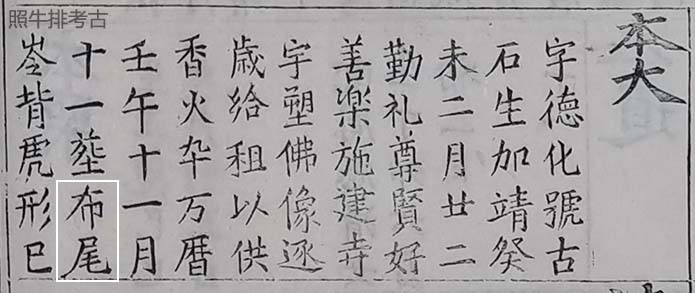 照牛排考古
本大
字德化號古
石生加靖癸
未二月廿二
勤礼尊賢好
善楽施建寺
宇塑佛像逐
歳给租以供
香火卆万曆
壬午十一月
十一塟布尾
岺背虎形巳